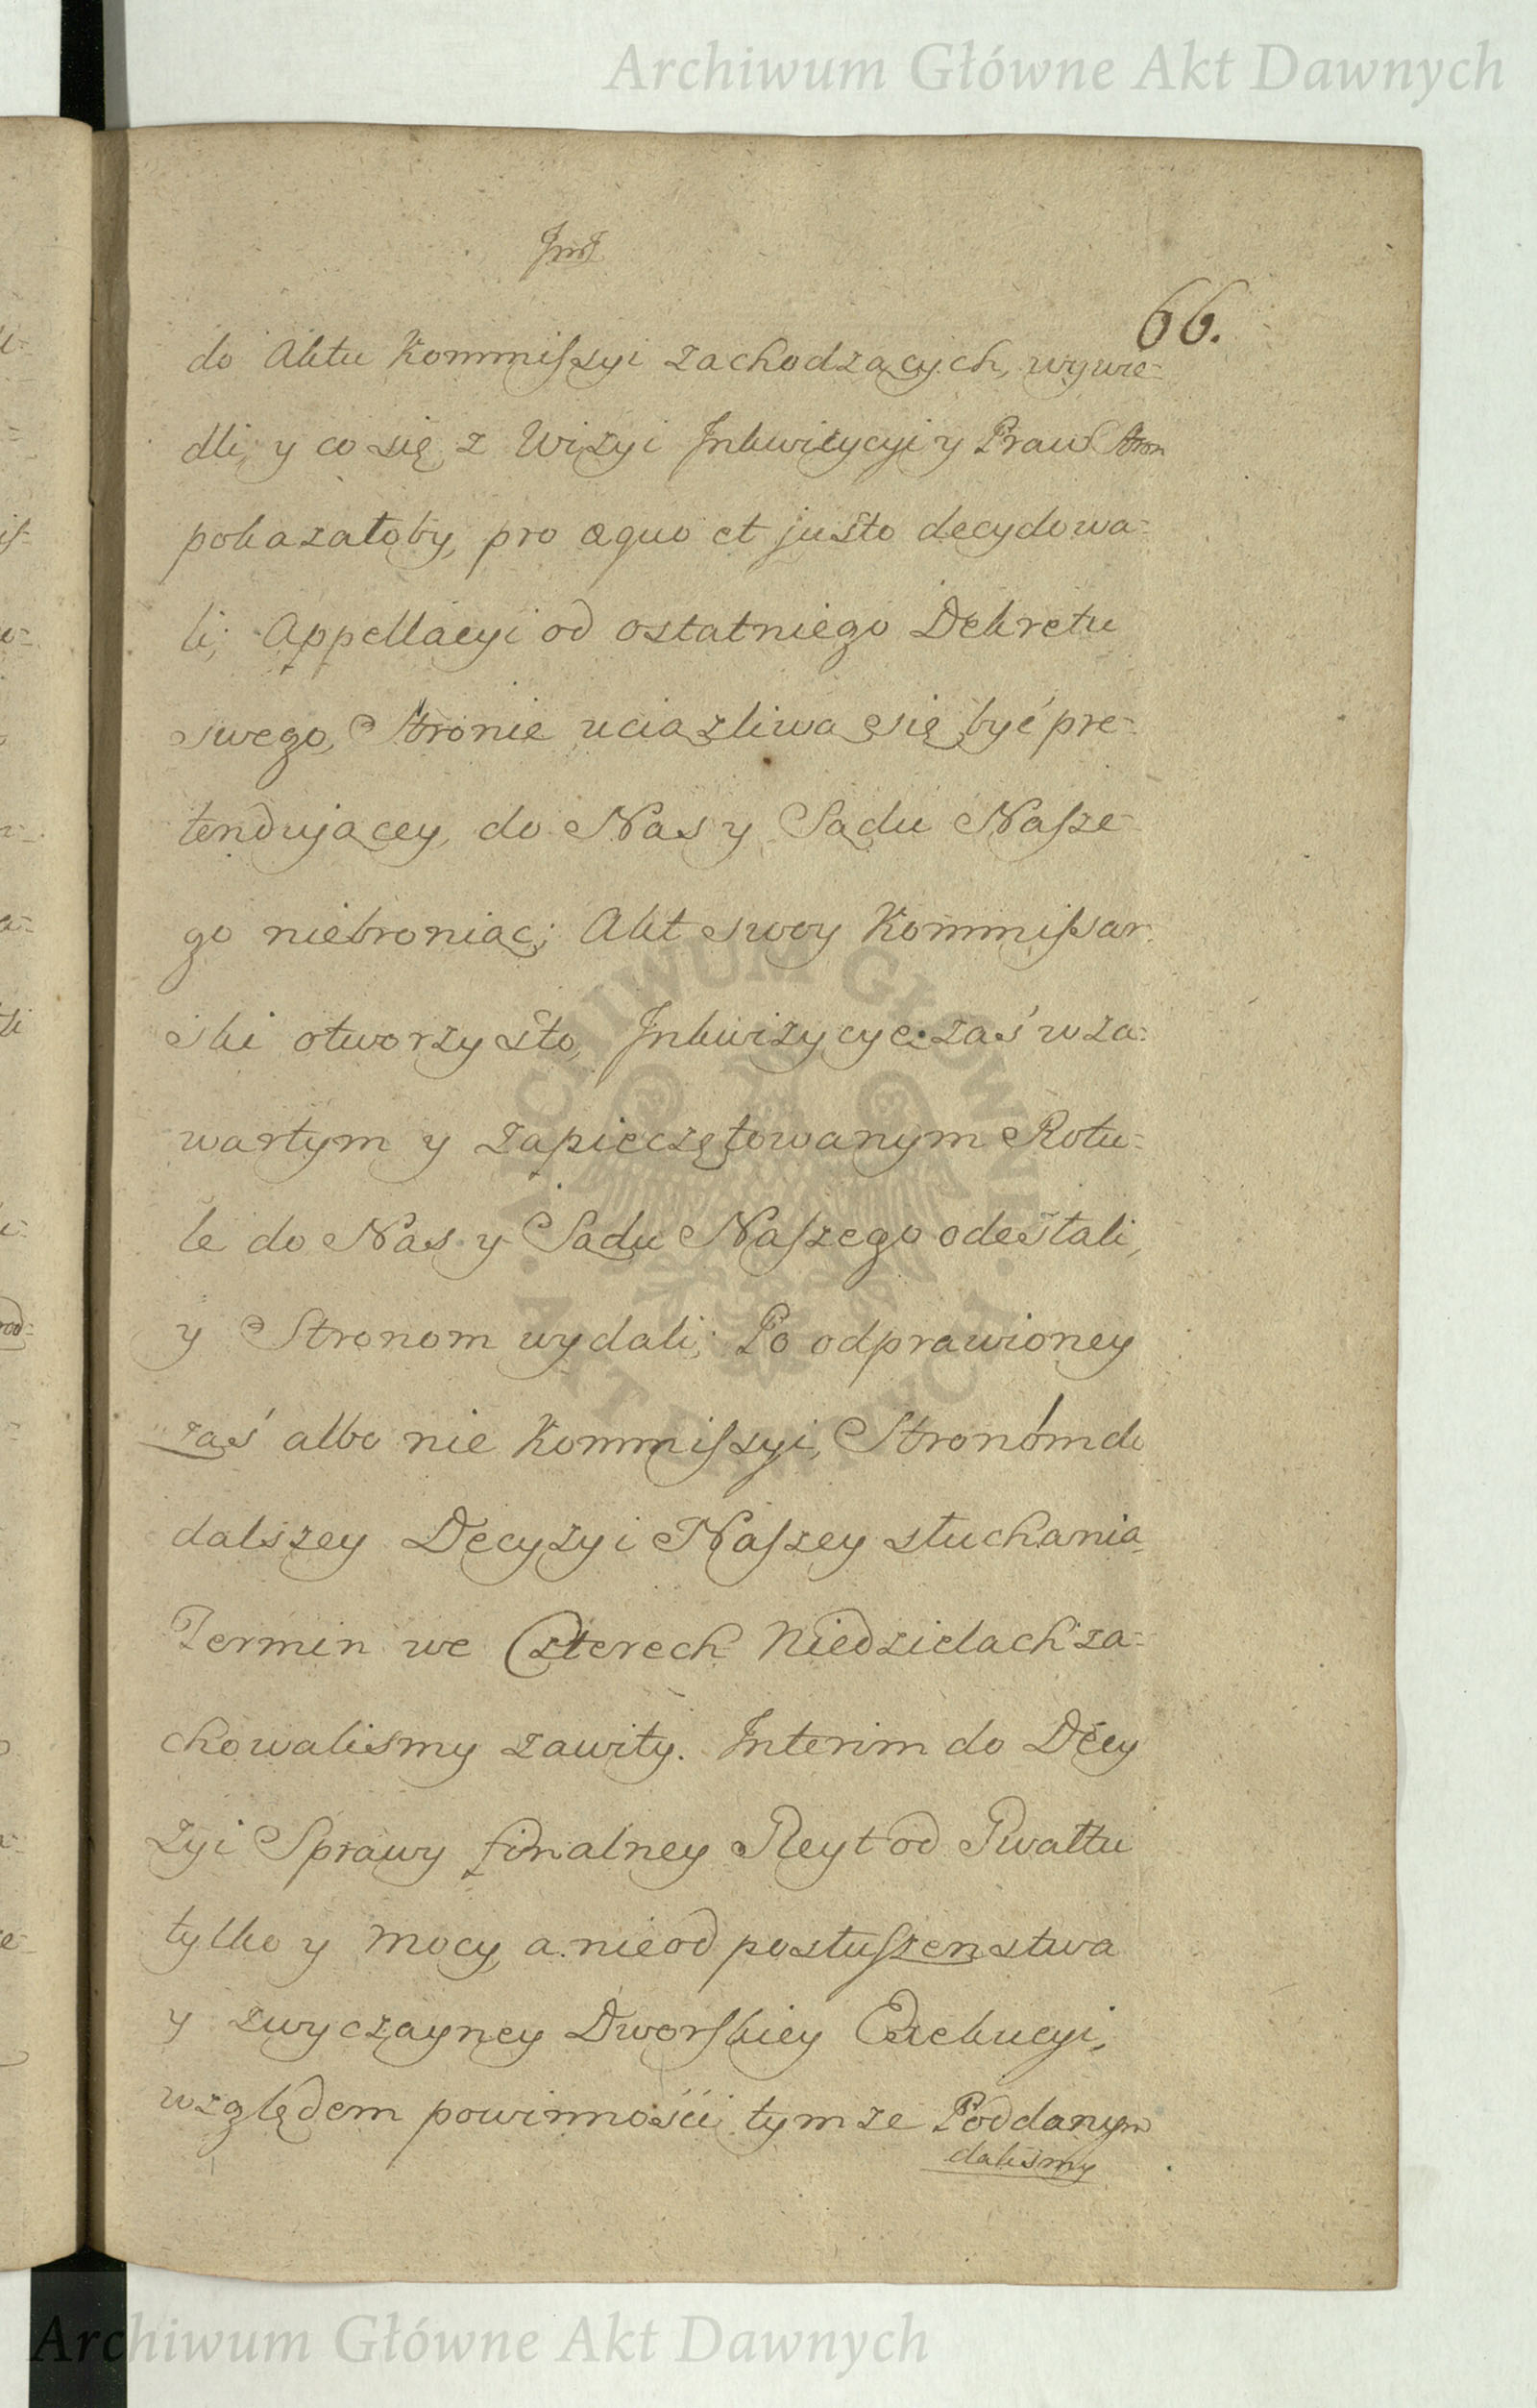 Archiwum Główne Akt Dawnych
66.
do Aktu Kommiſsyi zachodzących, wywie=
dli, y co się z Wizyi Inkwizycyi y Praw Stron
pokazałoby, pro æquo et justo decydowa=
li; Appellacyi od ostatniego Dekretu
swego, Stronie uciążliwą się być pre=
tenduiącey, do Nas y Sądu Naſze=
go niebroniąc; Akt swoy Kommiſsar=
ski otworzysto, Inkwizycye zaś w za=
wartym y zapieczętowanym Rotu=
le do Nas y Sądu Naſzego odesłali,
y Stronom wydali; Po odprawioney
zaś albo nie Kommiſsyi, Stronóm do
dalszey Decyzyi Naſzey słuchania
Termin we Czterech Niedzielach za=
chowalismy zawity. Interim do Decy
zyi Sprawy finalney Gleyt od Gwałtu
tylko y mocy, a nie od posłuſzenstwa
y zwyczayney Dworſkiey Exekucyi,
względem powinności tymze Poddanym
dalismy
ARCHIWUM GŁÓWNE AKT DAWNYCH
Archiwum Główne Akt Dawnych